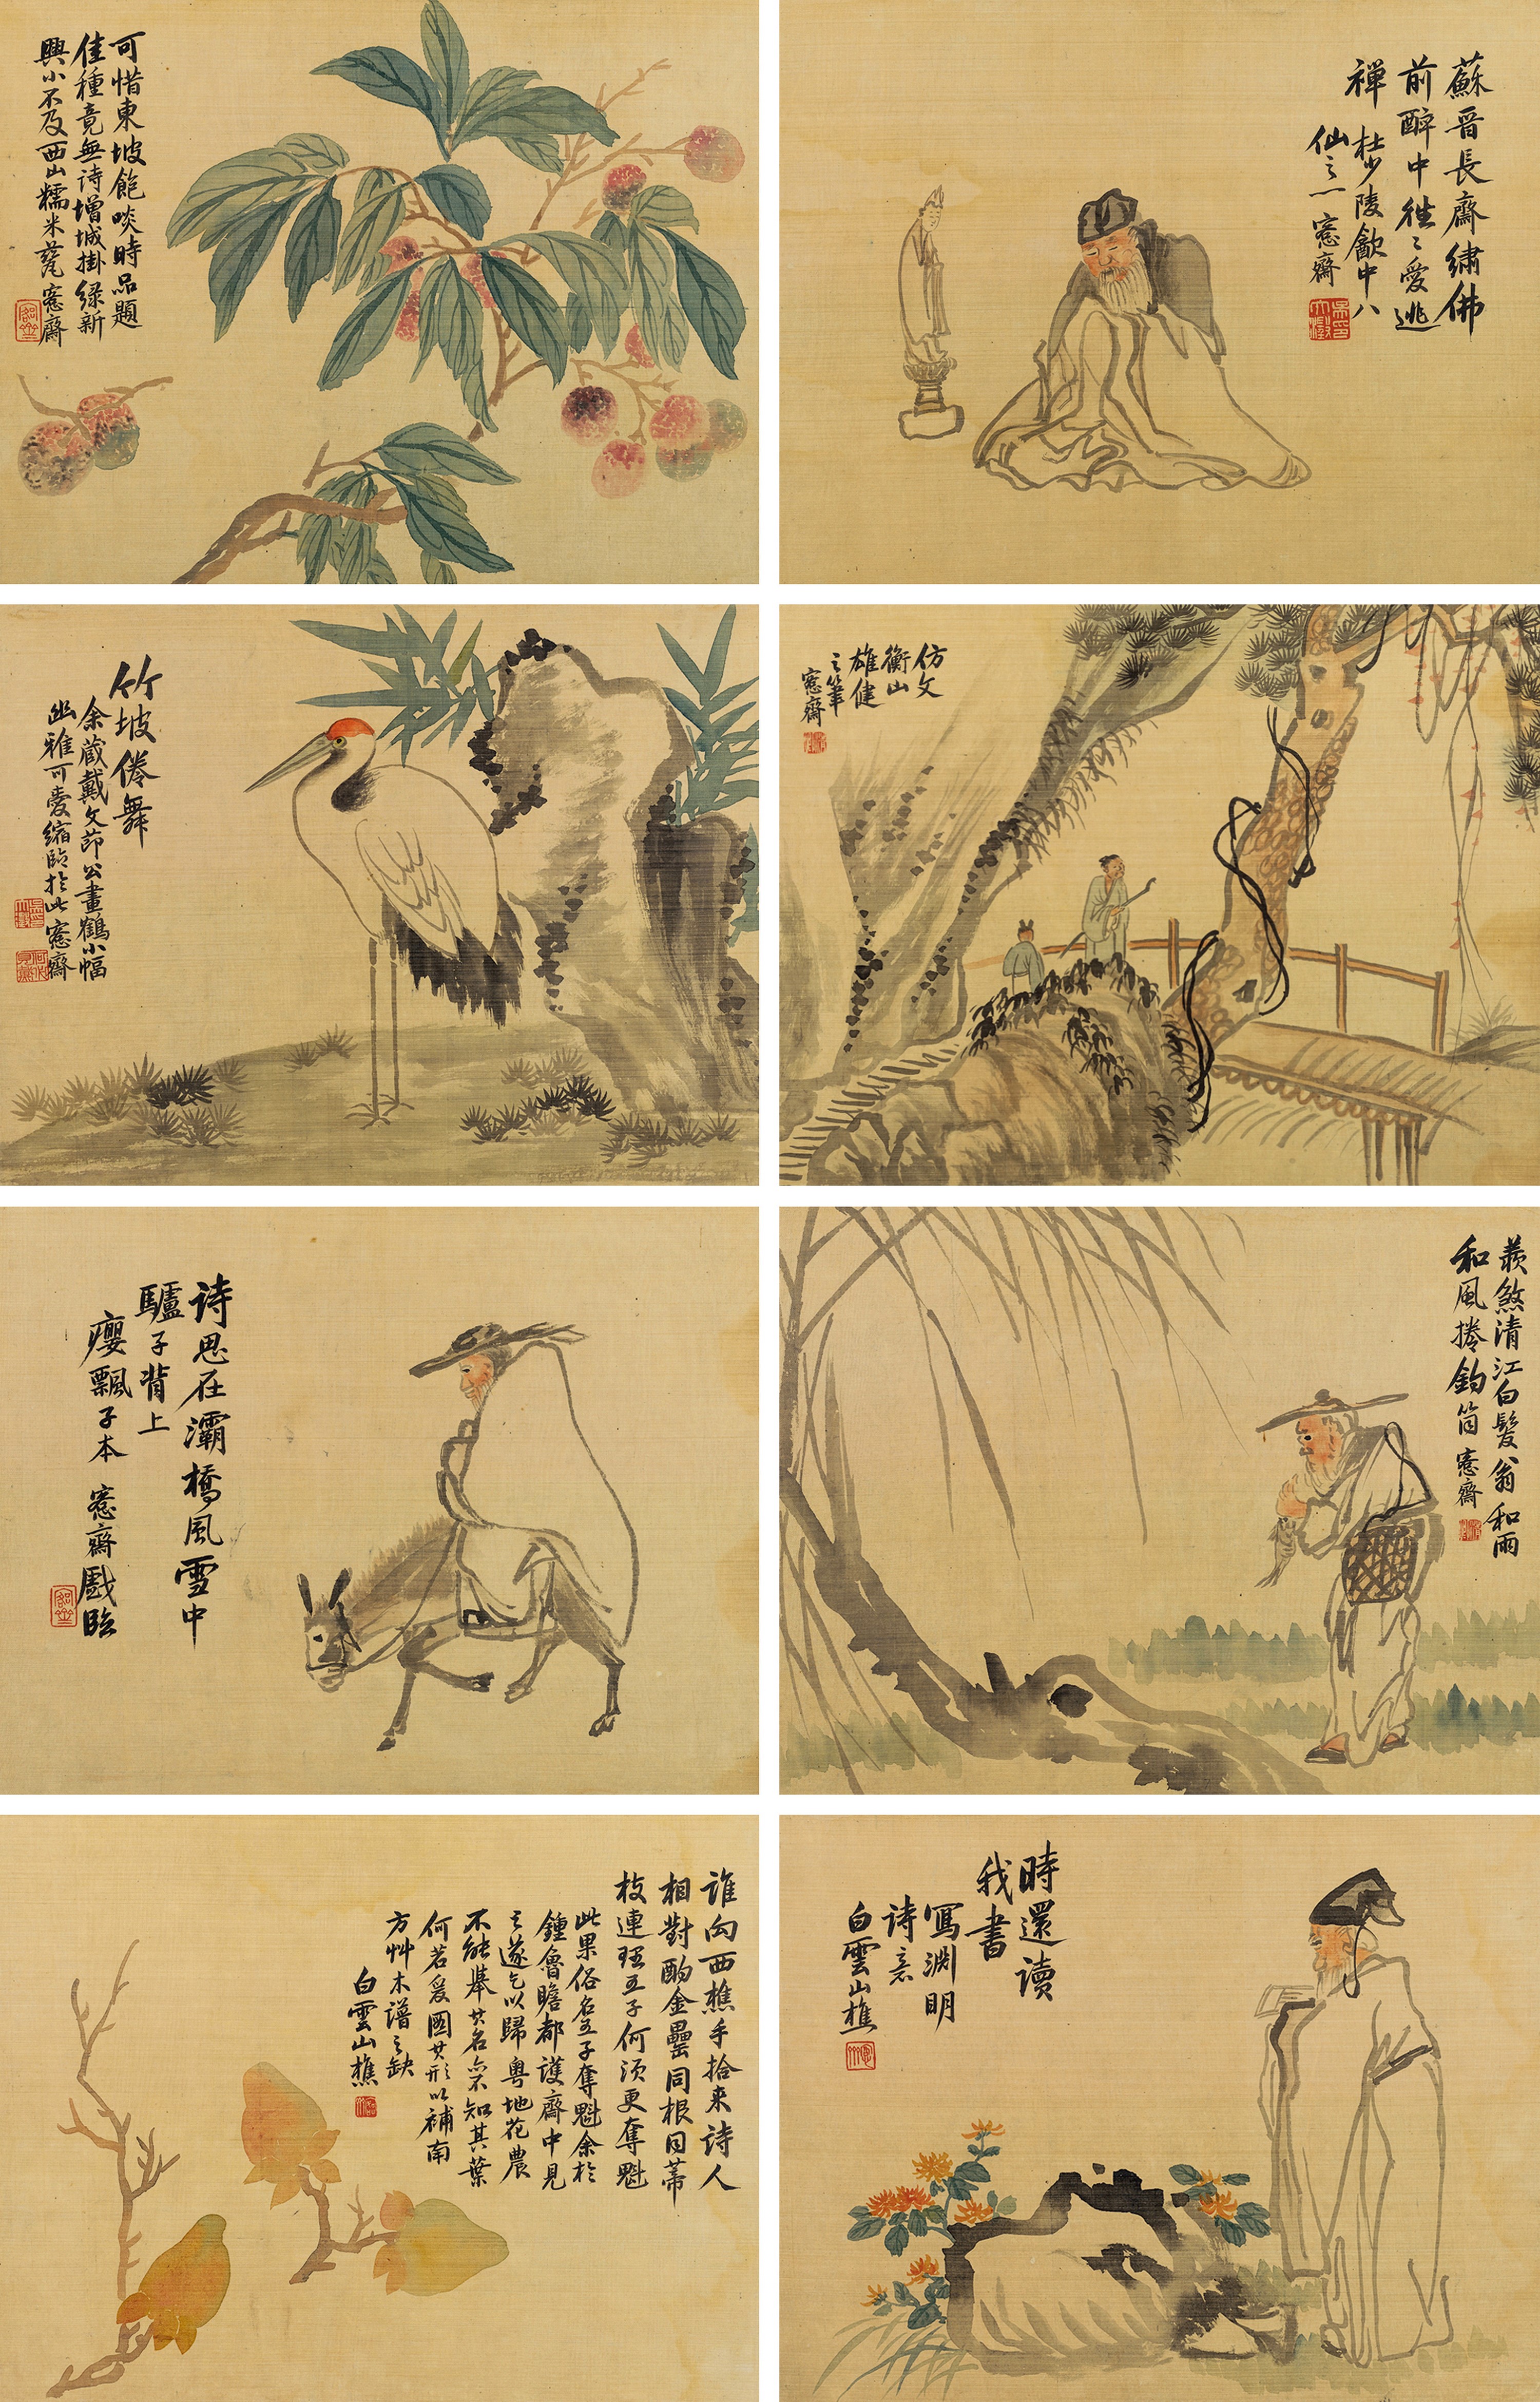 蘇晉長齋繡佛
前醉中往〻愛逃
禪
杜少陵飲中八
仙之一 愙齋
可惜東坡飽啖時品題
佳種竟無詩增城掛緑新
興小不及西山糯米甆愙齋
仿文
衡山
雄健
之筆
愙齋
竹坡倦舞
余藏戴文節公畫鶴小幅
幽雅可愛縮臨於此愙齋
羨煞清江白髮翁和雨
和風捲釣筒 愙齋
诗思在灞橋風雪中
驢子背上
癭瓢子本 愙齋戲臨
時還讀
我書
寫淵明
诗意
白雲山樵
誰向西樵手拾来詩人
相對酌金罍同根同蒂
枝連理五子何須更奪魁
此果俗名五子奪魁余於
鍾魯瞻都護齋中見
之遂乞以歸粤地花農
不能舉其名亦不知其葉
何若爰圖其形以補南
方艸木譜之缺
白雲山樵